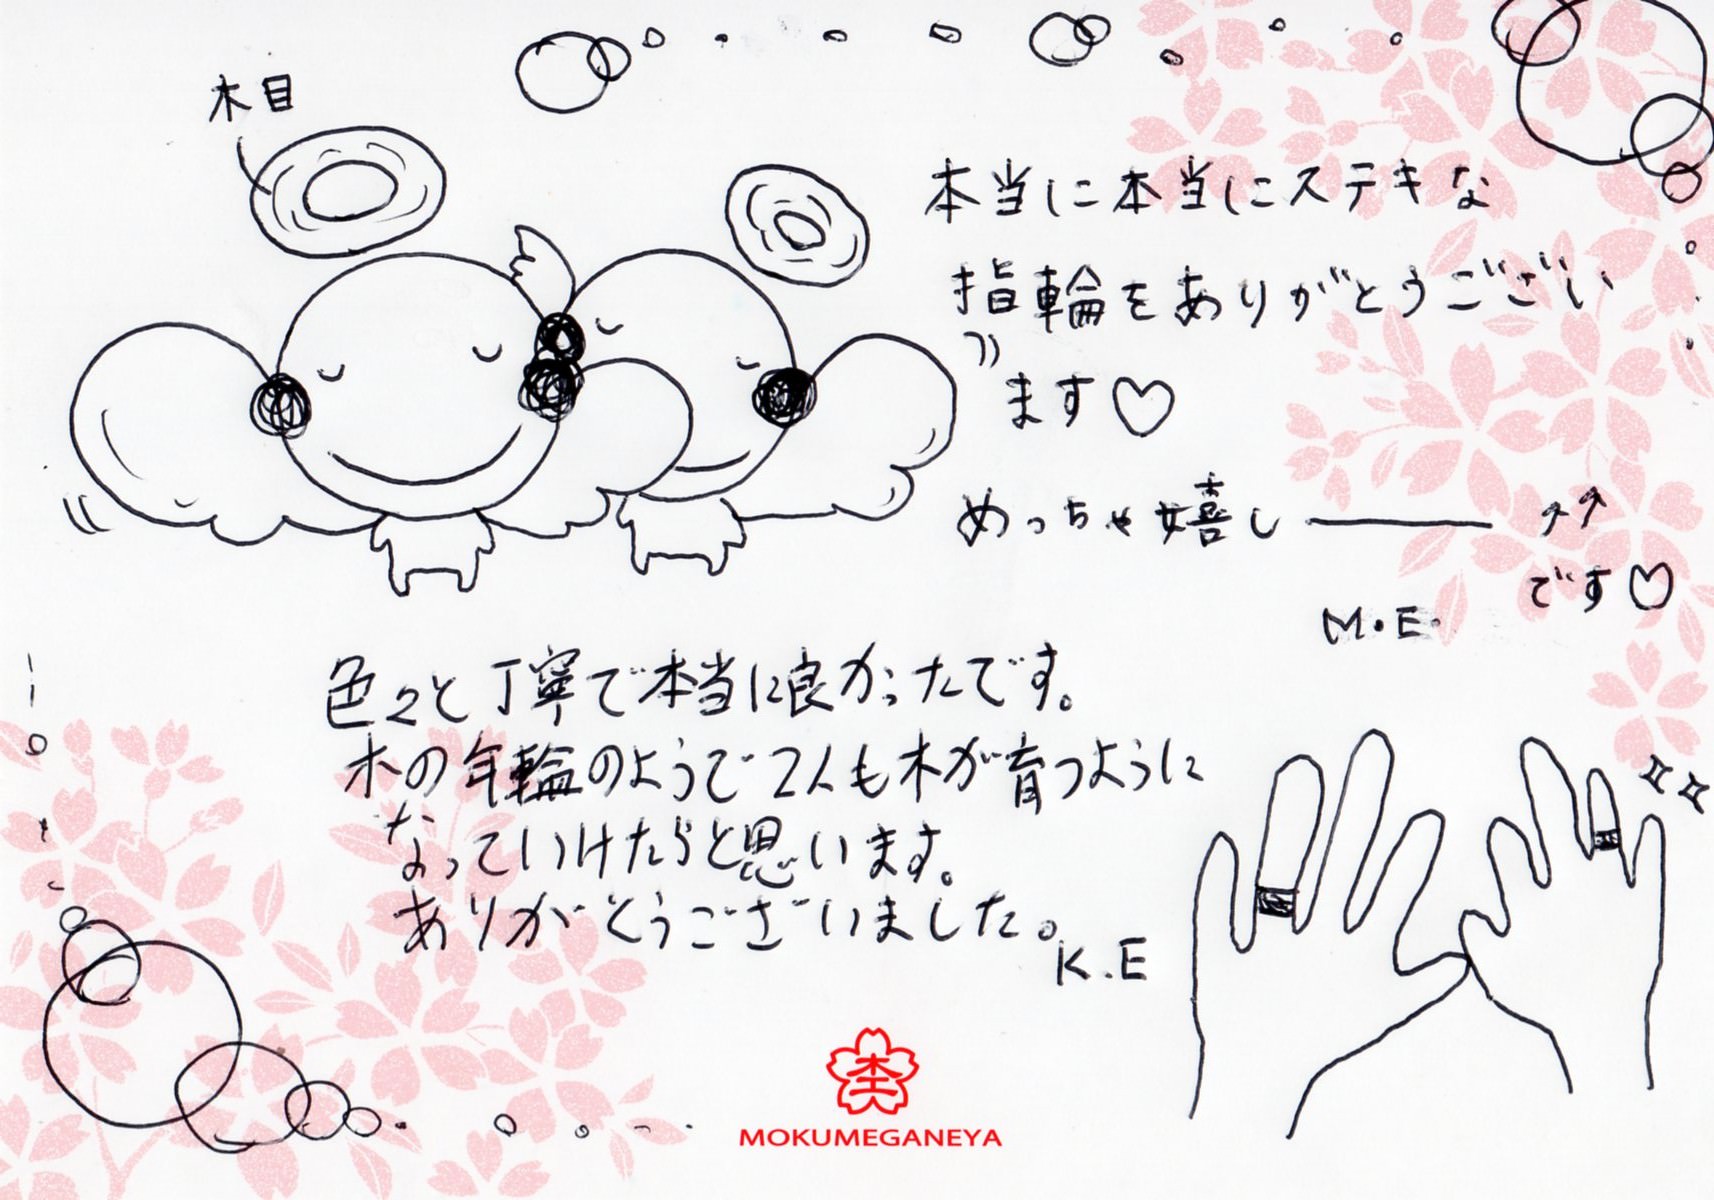 木目
本当に本当にステキな
指輪をありがとうござい
ます♡
めっちゃ嬉し―――↑↑
です♡
M.E.
色々と丁寧で本当に良かったです。
木の年輪のようで2人も木が育つように
なっていけたらと思います。
ありがとうございました。
K.E
杢
MOKUMEGANEYA